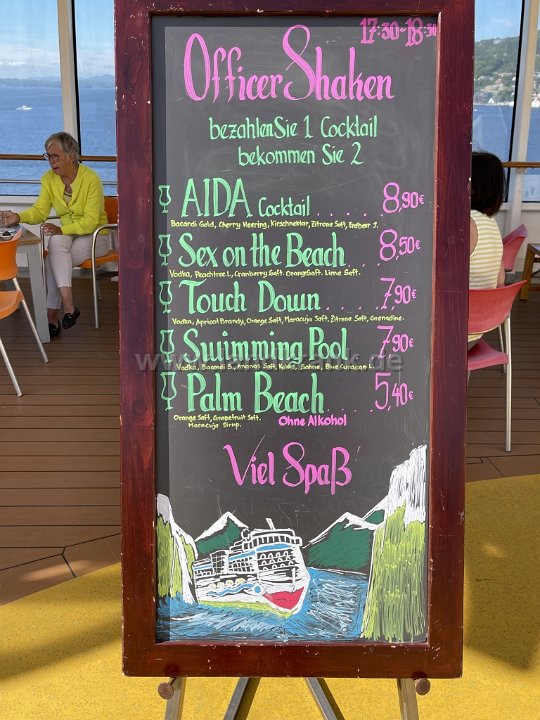 17:30-18:30
Officer Shaken
bezahlen Sie 1 Cocktail
bekommen Sie 2
AIDA Cocktail . . . . 8,90€
Bacardi Gold, Cherry Heering, Kirschnektar, Zitrone Saft, Erdbeer S.
Sex on the Beach . . . 8,50€
Vodka, Peachtree L., Cranberry Saft, Orange Saft. Lime Saft.
Touch Down . . . . 7,90€
Vodka, Apricot Brandy, Orange Saft, Maracuja Saft, Zitrone Saft, Grenadine.
Swimming Pool . . 7,90€
Vodka, Bacardi S., Ananas Saft, Kokos, Sahne, Blue Curacao L.
Palm Beach . . . . . 5,40€
Orange Saft, Grapefruit Saft. Ohne Alkohol
Maracuja Sirup.
Viel Spaß